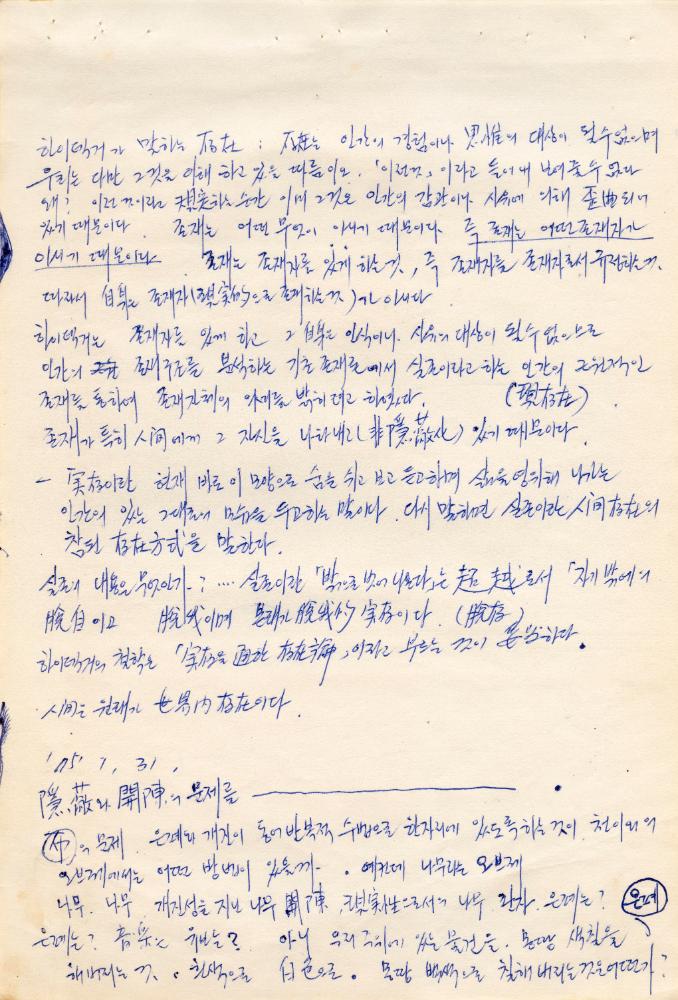 하이덱거가 말하는 存在 : 存在는 인간의 경험이나 思惟의 대상이 될 수 없으며
우리는 다만 그것을 이해하고 있을 따름이오. 「이런것」이라고 들어내 보여줄 수 없다
왜? 이런 것이라고 현実하는 순간 이미 그것은 인간의 감관이나 사유에 의해 歪曲되어
있기 때문이다. 존재는 어떤 무엇이 아니기 때문이다. 즉 존재는 어떤 존재자가
아니기 때문이다. 존재는 존재자를 있게 하는 것, 즉 존재자를 존재자로서 규정하는 것.
따라서 自身은 존재자(現実的으로 존재하는 것)가 아니다
하이덱거는 존재자를 있게 하고 그 自身은 인식이나 사유의 대상이 될 수 없으므로
인간의 존재구조를 분석하는 기초존재론에서 실존이라고 하는 인간의 근원적인
존재를 통하여 존재자체의 의미를 밝히려고 하였다. (現存在).
존재가 특히 人間에게 그 자신을 나타내고(非隱蔽化) 있기 때문이다.
- 実存이란 현재 바로 이 모양으로 숨을 쉬고 보고 듣고 하며 삶을 영위해 나가는
인간의 있는 그대로의 모습을 두고 하는 말이다. 다시 말하면 실존이란 人間存在의
참된 存在方式을 말한다.
실존의 내용은 무엇인가? .... 실존이란 「밖으로 벗어나온다」는 超越로서 「자기 밖에의
脫自이고 脫我이며 본래가 脫我的 実存이다. (脫存)
하이덱거의 철학은 「実存을 通한 存在論」이라고 부르는 것이 妥当하다.
人間은 원래가 世界内存在이다.
'75 7, 31,
隱蔽와 開陳의 문제를
布의 문제. 은폐와 개진이 동어반복적 수법으로 한자리에 있도록 하는 것이 천 이외의
오브제에서는 어떤 방법이 있을까. . 예컨대 나무라는 오브제
나무. 나무 개진성을 지닌 나무 開陳, 現実性으로서의 나무 은폐는? 은폐
은폐는? 音楽은 아니 우리 주위에 있는 물건을. 몽땅 색칠을
해버리는 것. . 흰색으로 白色으로. 몽땅 백색으로 칠해버리는 것은 어떤가?